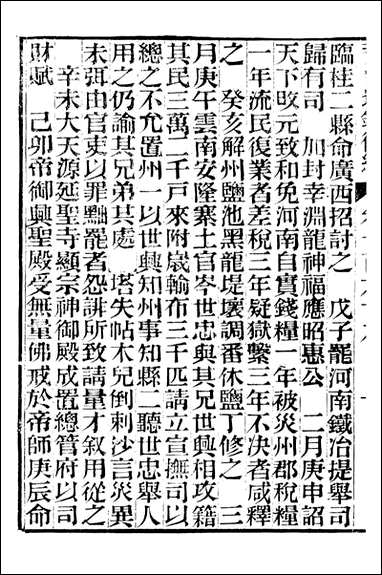 臨桂二縣命廣西招討之　戊子罷河南鐵冶提舉司
歸有司　加封幸淵龍神福應昭惠公　二月庚申詔
天下改元致和免河南自實錢糧一年被災州郡稅糧
一年流民復業者差稅三年疑獄繫三年不決者咸釋
之　癸亥解州鹽池黑龍堤壞調番休鹽丁修之　三
月庚午雲南安隆寨土官岑世忠與其兄世興相攻籍
其民三萬二千戶來附歲輸布三千匹請立宣撫司以
總之不允置州一以世興知州事知縣二聽世忠舉人
用之仍諭其兄弟共處　塔失帖木兒倒剌沙言災異
未弭由官吏以罪黜罷者怨誹所致請量才叙用從之
辛未大天源延聖寺顯宗神御殿成置總管府以司
財賦　己卯帝御興聖殿受無量佛戒於帝師庚辰命